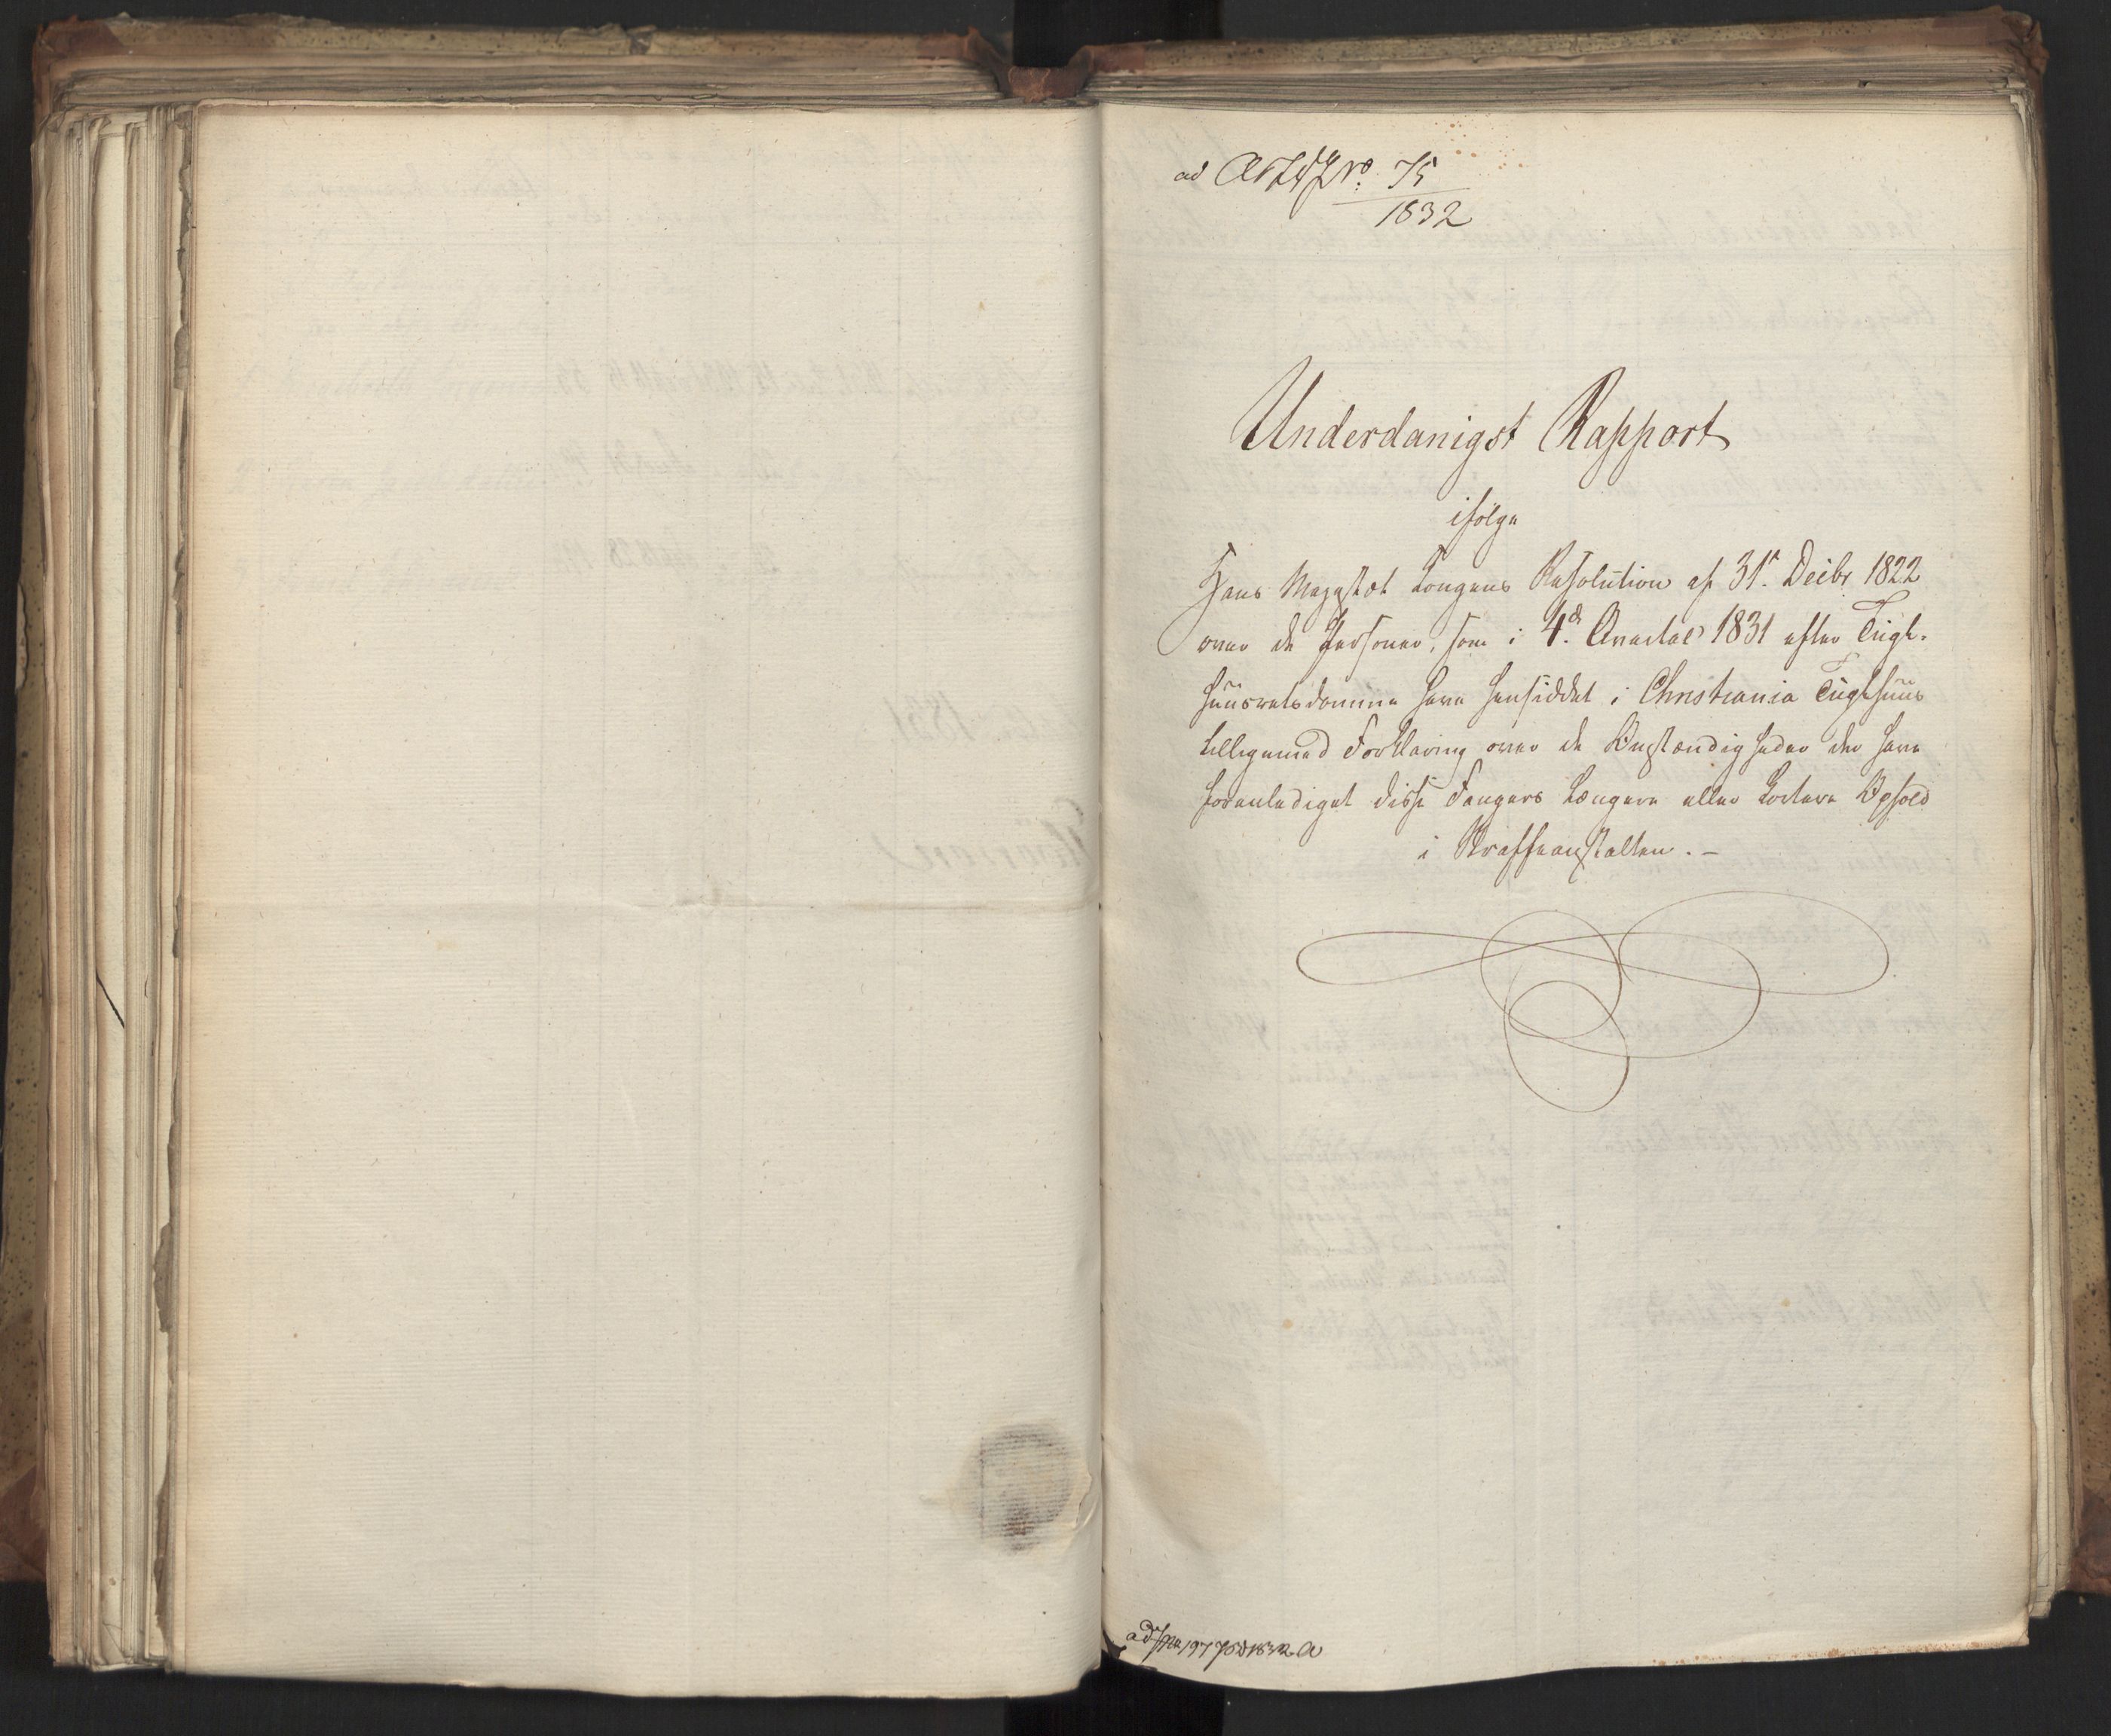 ad No: 75
1832
Underdanigst Rapport
ifølge
Hans Majestæt Kongens Resolution af 31t Decbr 1822
over de Personer, som i 4de Qvartal 1831 efter Tugt-
huusretsdomme have hensiddet i Christiania Tugthuus
tilligemed Forklaring over de Omstændigheder der have
foranlediget disse Fangers længere eller kortere Ophold
i Straffeanstalten. -